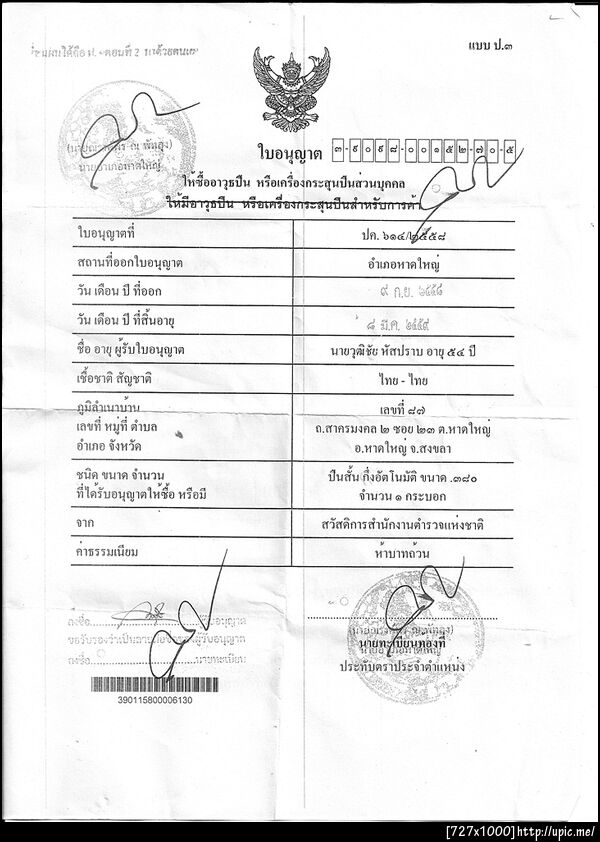 แบบ ป.๓
ตอนที่ 2
ใบอนุญาต ๓-๙๐๙๘-๐๐๑๕๒-๗๐-๕
ให้ซื้ออาวุธปืน หรือเครื่องกระสุนปืนส่วนบุคคล
ให้มีอาวุธปืน หรือเครื่องกระสุนปืนสำหรับการค้า
ใบอนุญาตที่ ปค. ๖๑๔/๒๕๕๘
สถานที่ออกใบอนุญาต อำเภอหาดใหญ่
วัน เดือน ปี ที่ออก ๙ ก.ย. ๒๕๕๘
วัน เดือน ปี ที่สิ้นอายุ ๘ มี.ค. ๒๕๕๙
ชื่อ อายุ ผู้รับใบอนุญาต นายวุฒิชัย หัสปราบ อายุ ๕๔ ปี
เชื้อชาติ สัญชาติ ไทย - ไทย
ภูมิลำเนาบ้าน เลขที่ ๘๗
เลขที่ หมู่ที่ ตำบล ถ.สาครมงคล ๒ ซอย ๒๓ ต.หาดใหญ่
อำเภอ จังหวัด อ.หาดใหญ่ จ.สงขลา
ชนิด ขนาด จำนวน ปืนสั้น กึ่งอัตโนมัติ ขนาด .๓๘๐
ที่ได้รับอนุญาตให้ซื้อ หรือมี จำนวน ๑ กระบอก
จาก สวัสดิการสำนักงานตำรวจแห่งชาติ
ค่าธรรมเนียม ห้าบาทถ้วน
นายอำเภอหาดใหญ่
ลงชื่อ
ลงชื่อ นายทะเบียน
390115800006130
นายทะเบียนท้องที่
นายอำเภอหาดใหญ่
ประทับตราประจำตำแหน่ง
[727x1000]http://upic.me/